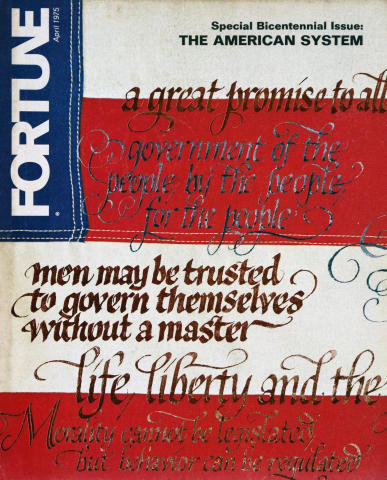 FORTUNE
April 1975
Special Bicentennial Issue:
THE AMERICAN SYSTEM
a great promise to all
government of the
people by the people,
for the people
men may be trusted
to govern themselves
without a master
life, liberty and the
Morality cannot be legislated,
but behavior can be regulated